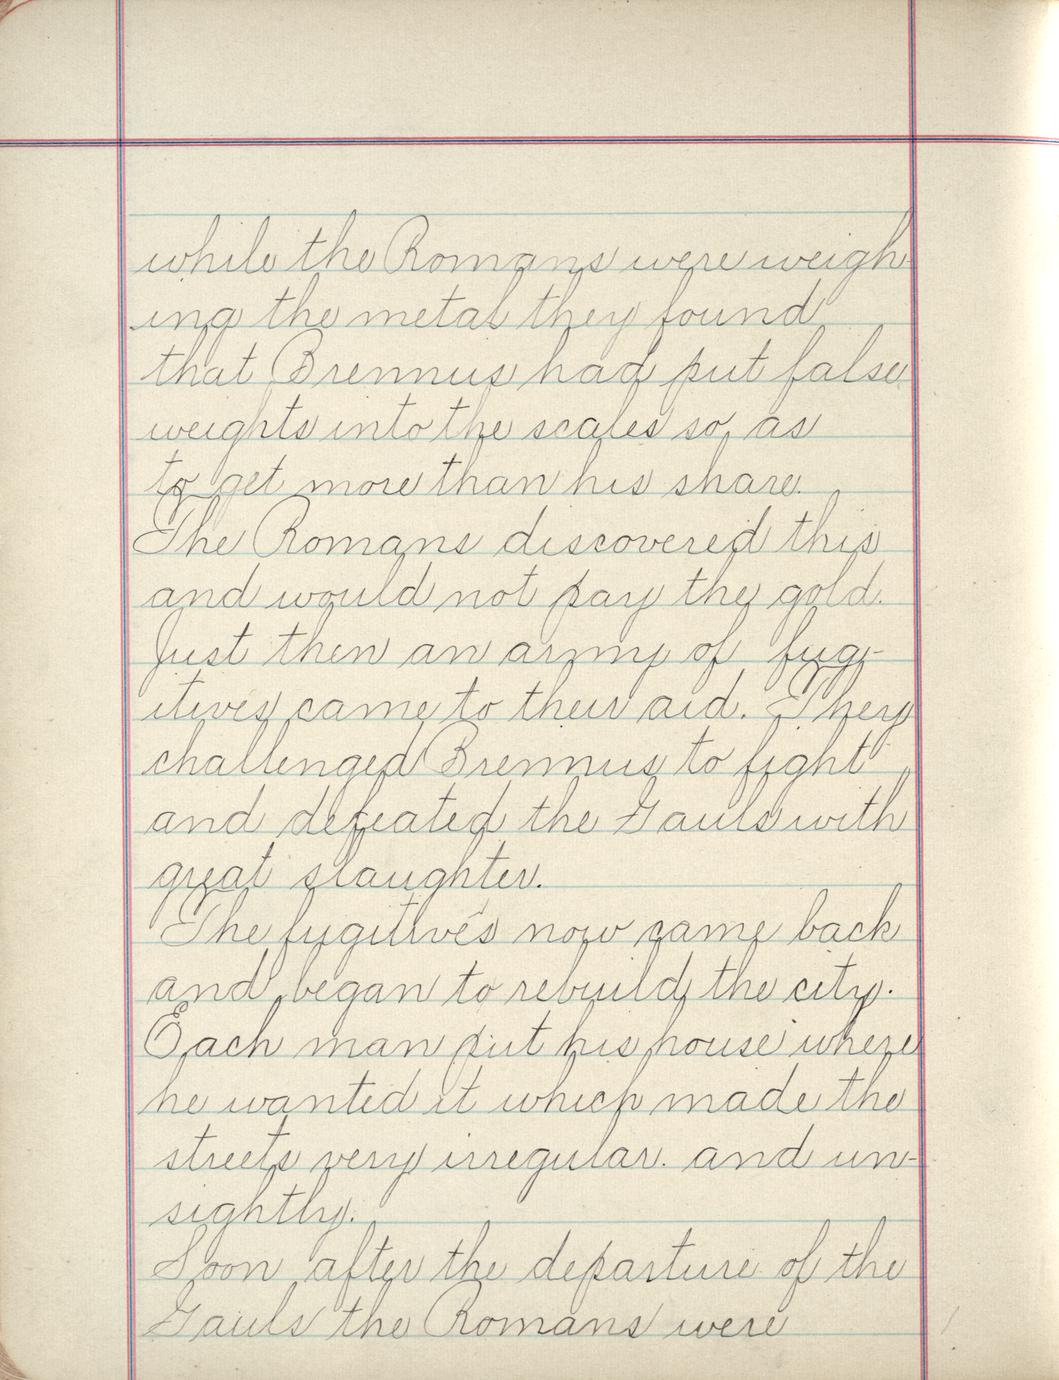 while the Romans were weigh
ing the metal they found
that Brennus had put false
weights into the scales so as
to get more than his share.
The Romans discovered this
and would not pay the gold.
Just then an army of fug-
itives came to their aid. They
challenged Brennus to fight
and defeated the Gauls with
great slaughter.
The fugitives now came back
and began to rebuild the city.
Each man put his house where
he wanted it which made the
streets very irregular. and un-
sightly.
Soon after the departure of the
Gauls the Romans were